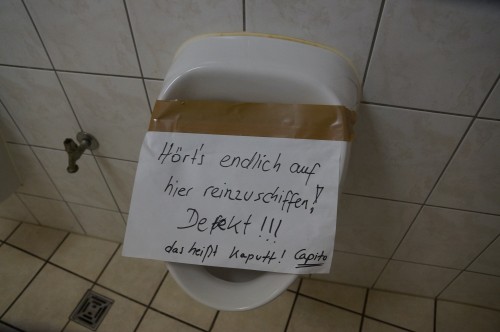 Hört's endlich auf
hier reinzuschiffen!
Defekt!!!
das heißt Kaputt! Capito